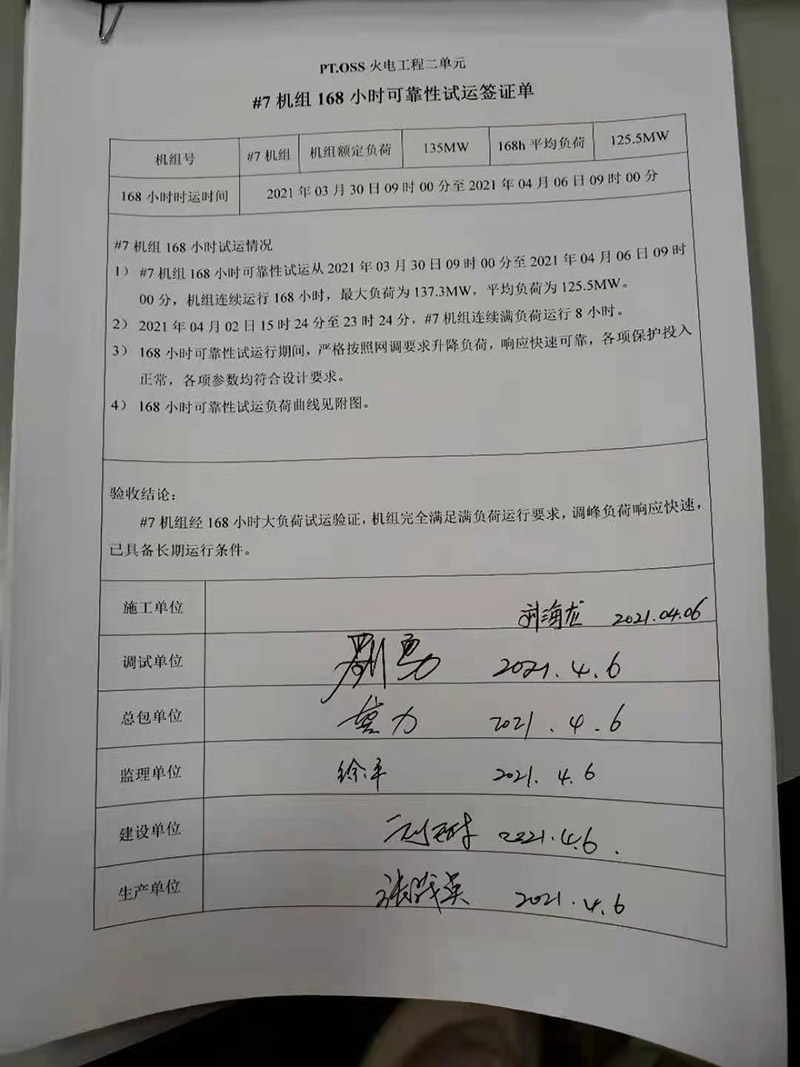 PT.OSS 火电工程二单元
#7 机组 168 小时可靠性试运签证单
机组号 #7 机组 机组额定负荷 135MW 168h 平均负荷 125.5MW
168 小时时运时间 2021 年 03 月 30 日 09 时 00 分至 2021 年 04 月 06 日 09 时 00 分
#7 机组 168 小时试运情况
1） #7 机组 168 小时可靠性试运从 2021 年 03 月 30 日 09 时 00 分至 2021 年 04 月 06 日 09 时
00 分，机组连续运行 168 小时，最大负荷为 137.3MW，平均负荷为 125.5MW。
2） 2021 年 04 月 02 日 15 时 24 分至 23 时 24 分，#7 机组连续满负荷运行 8 小时。
3） 168 小时可靠性试运行期间，严格按照网调要求升降负荷，响应快速可靠，各项保护投入
正常，各项参数均符合设计要求。
4） 168 小时可靠性试运负荷曲线见附图。
验收结论：
#7 机组经 168 小时大负荷试运验证，机组完全满足满负荷运行要求，调峰负荷响应快速，
已具备长期运行条件。
施工单位 刘海龙 2021.04.06
调试单位 2021.4.6
总包单位 2021.4.6
监理单位 2021.4.6
建设单位 2021.4.6.
生产单位 2021.4.6